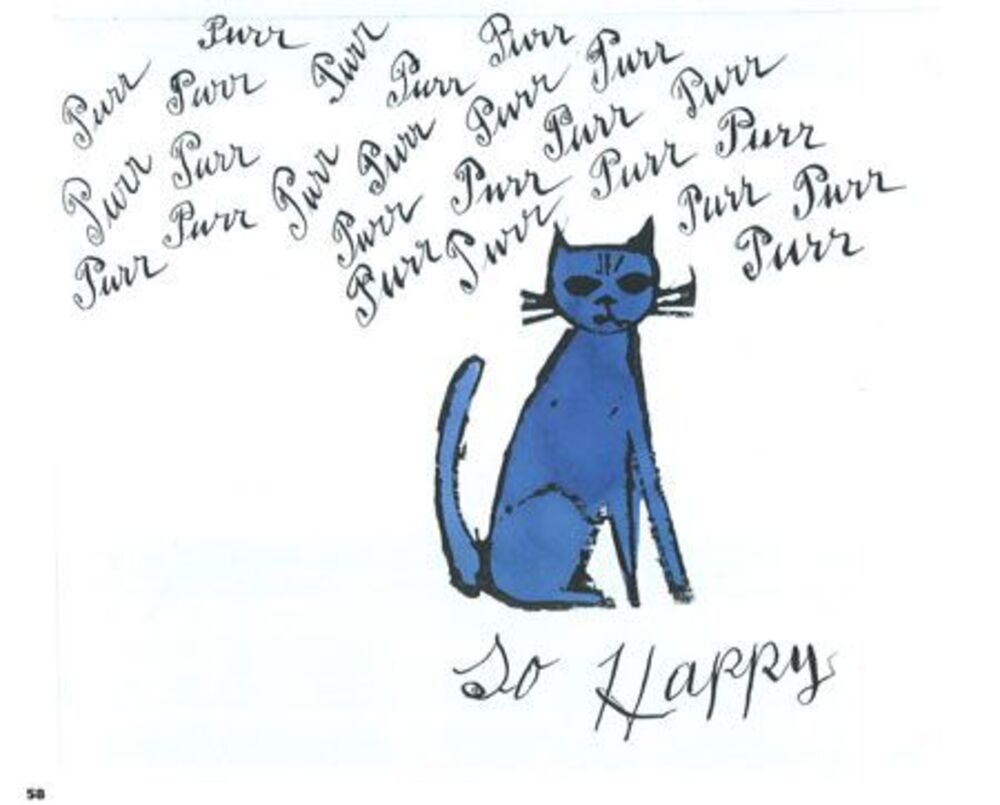 Purr Purr Purr
Purr Purr Purr Purr Purr Purr
Purr Purr Purr Purr Purr Purr Purr Purr
Purr Purr Purr Purr Purr
Purr Purr Purr
So Happy
58